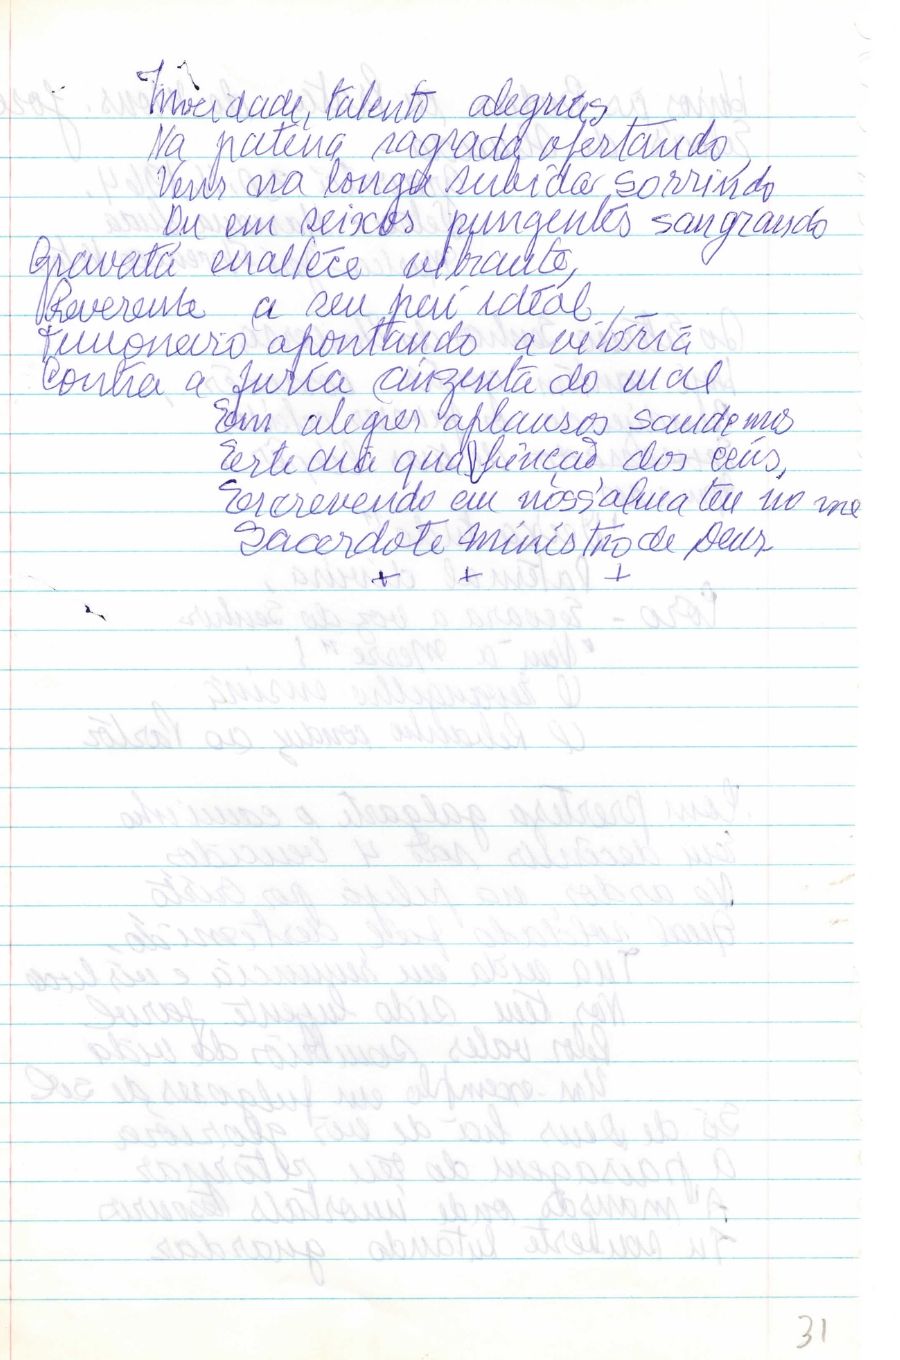 Mocidade, talento alegrias
Na patena sagrada ofertando
Vens na longa subida sorrindo
Ou em seixos pungentes sangrando
Gravatá enaltece vibrante,
Reverente a seu ideal
Timoneiro apontando a vitória
Contra a fúria cinzenta do mal
Em alegres aplausos saudemos
Este dia qual bênção dos céus,
Escrevendo em noss'alma teu nome
Sacerdote Ministro de Deus
+ + +
31